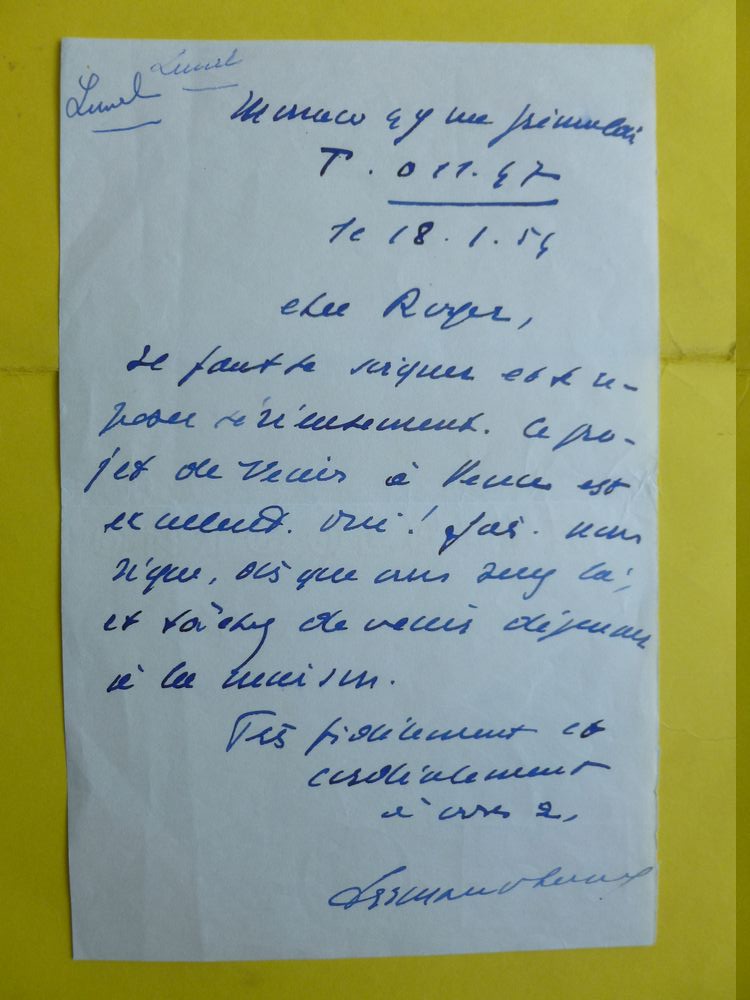 Lunel Lunel
Monaco 49 rue Grimaldi
T. 011.47
le 18.1.54
cher Roger,
Il faut te soigner et te re-
poser sérieusement. Ce pro-
jet de venir à Vence est
excellent. Oui! fais-nous
signe, dès que vous serez là,
et tâchez de venir déjeuner
à la maison.
Très fidèlement et
cordialement
à vous 2,
Armand Lunel